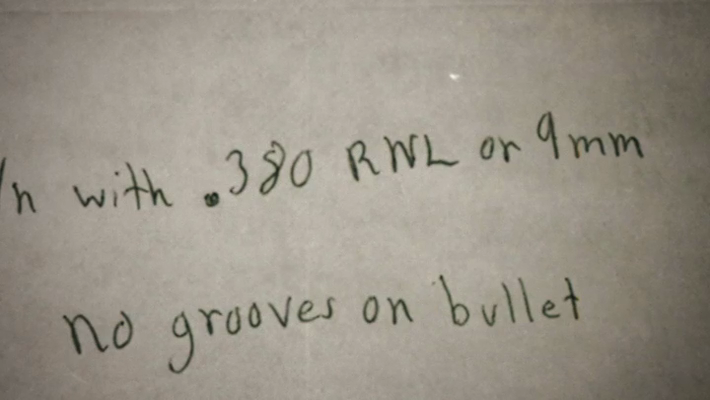 with .380 RWL or 9mm
no grooves on bullet